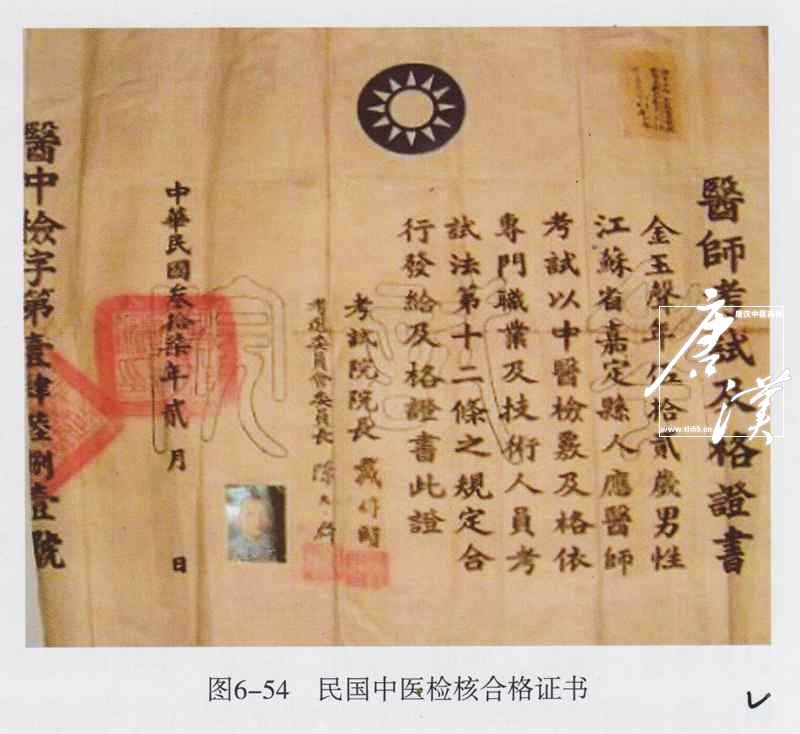 醫師考試及格證書
金玉聲年伍拾貳歲男性
江蘇省嘉定縣人應醫師
考試以中醫檢覈及格依
專門職業及技術人員考
試法第十二條之規定合
行發給及格證書此證
考試院院長 戴
考選委員會委員長 陳
中華民國叁拾柒年貳月 日
醫中檢字第壹肆陸捌壹號
唐汉中医药网
唐漢
www.th55.cn
图6-54 民国中医检核合格证书